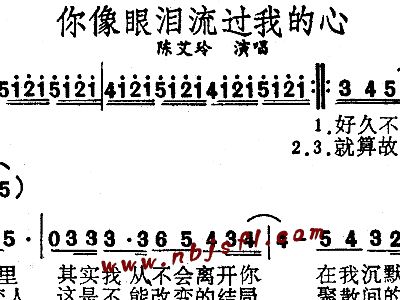 你像眼泪流过我的心
陈艾玲 演唱
5121 5121 4121 5121 5121 4121 5121 3 4 5
1.好久不
2.3.就算故
5)
5· 033 3·36 5 4 5 34 4
里 其实我 从不会离开你 在我沉默
变人 这是不能改变的结局 聚散间的
www.nbjsfl.com